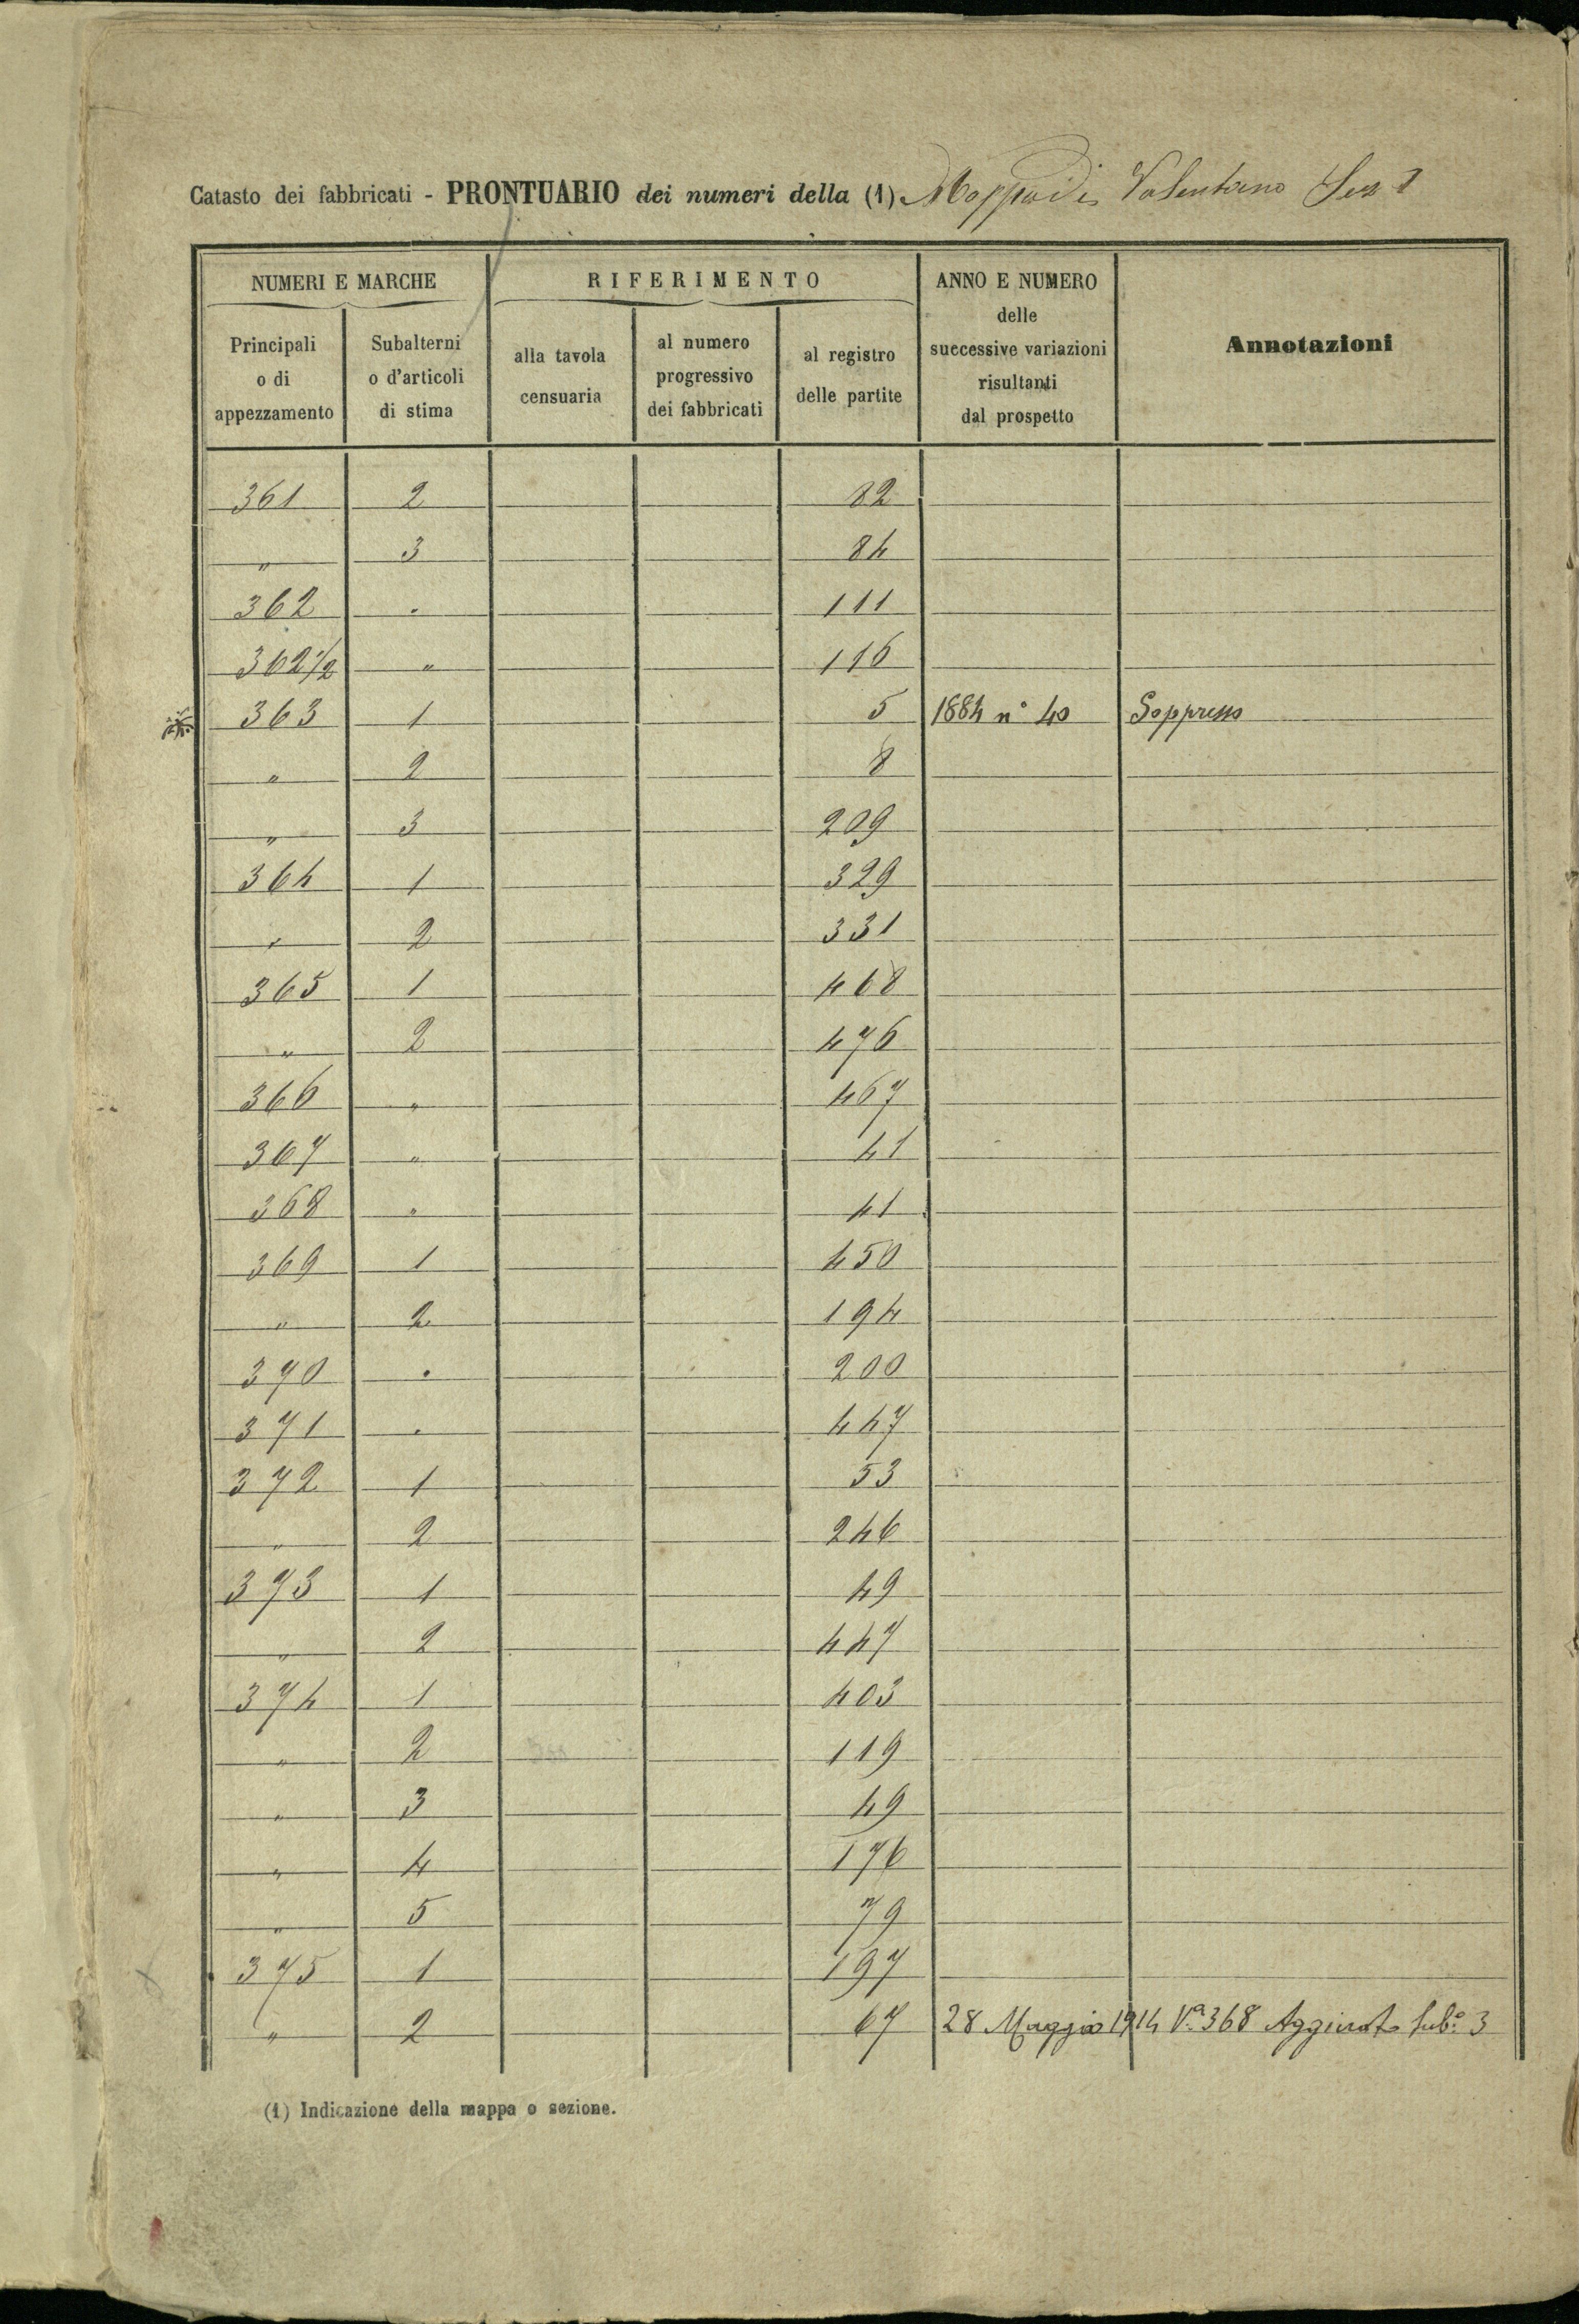 Catasto dei fabbricati - PRONTUARIO dei numeri della (1) Mappa di Valentano Sez 1
NUMERI E MARCHE
RIFERIMENTO
ANNO E NUMERO
delle
successive variazioni
risultanti
dal prospetto
Annotazioni
Principali
o di
appezzamento
Subalterni
o d'articoli
di stima
alla tavola
censuaria
al numero
progressivo
dei fabbricati
al registro
delle partite
361 2 82
" 3 84
362 " 111
362 1/2 " 116
363 1 5 1884 n° 40 Soppresso
" 2 8
" 3 209
364 1 329
" 2 331
365 1 468
" 2 476
366 " 467
367 " 41
368 " 41
369 1 450
" 2 194
370 " 200
371 " 447
372 1 53
" 2 246
373 1 49
" 2 447
374 1 403
" 2 119
" 3 49
" 4 176
" 5 79
375 1 197
" 2 67 28 Maggio 1914 Va 368 Aggiunto Sub.° 3
(1) Indicazione della mappa o sezione.